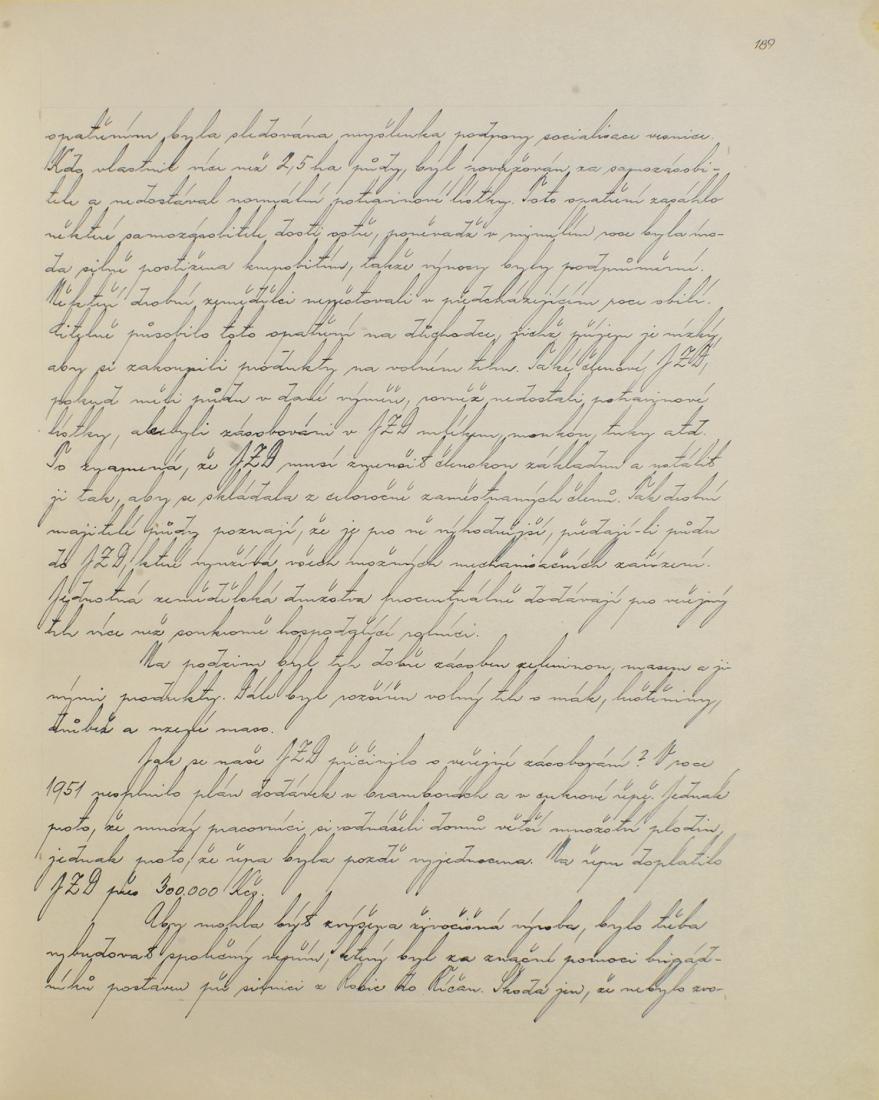 189
opatřením byla sledována myšlenka podpory socialisace vesnice.
Kdo vlastnil více než 2,5 ha půdy, byl považován za samozásobi-
tele a nedostával normální potravinové lístky. Toto opatření zasáhlo
některé samozásobitele dosti ostře, poněvadž v minulém roce byla úro-
da silně postižena krupobitím, takže výnosy byly podprůměrné.
Někteří drobní zemědělci nepěstovali v předcházejícím roce obilí.
Citelně působilo toto opatření na důchodce, jichž příjem je nízký,
aby si zakoupili produkty na volném trhu. Také členové JZD,
pokud měli půdu v dané výměře, rovněž nedostali potravinové
lístky, ale byli zásobováni v JZD mlékem, moukou, tuky atd.
To znamená, že JZD musí zmenšit členskou základnu a ustálit
ji tak, aby se skládala z celoročně zaměstnaných členů. Tak drobní
majitelé půdy poznají, že je pro ně výhodnější, předají-li půdu
do JZD, které využívá všech možných mechanisačních zařízení.
Jednotná zemědělská družstva procentuálně dodávají pro veřejný
trh více než soukromě hospodařící rolníci.
Na podzim byl trh dobře zásoben zeleninou, masem a ji-
nými produkty. Dále byl rozšířen volný trh o mák, luštěniny,
drůbež a uzené maso.
Jak se naše JZD přičinilo o veřejné zásobování? V roce
1951 nesplnilo plán dodávek v bramborách a v cukrové řepě. Jednak
proto, že mnozí pracovníci si odnášeli domů větší množství plodin,
jednak proto, že řepa byla pozdě vyjednocena. Na řepu doplatilo
JZD přes 300.000 Kčs.
Aby mohla být zvýšena živočišná výroba, bylo třeba
vybudovat společný vepřín, který byl za značné pomoci brigád-
níků postaven při silnici z Rosic do Říčan. Škoda jen, že nebylo zvo-